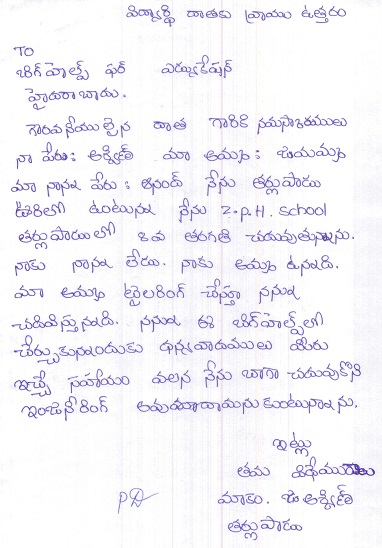 విద్యార్థి దాతకు వ్రాయు ఉత్తరం
TO
బిగ్ హెల్ప్ ఫర్ ఎడ్యుకేషన్
హైదరాబాదు.
గౌరవనీయులైన దాత గారికి నమస్కారములు
నా పేరు: అశ్విణీ మా అమ్మ: జయమ్మ
మా నాన్న పేరు: ఆనంద్ నేను తర్లుపాడు
ఊరిలో ఉంటున్న నేను Z.P.H. School
తర్లుపాడులో 8వ తరగతి చదువుతున్నాను.
నాకు నాన్న లేడు. నాకు అమ్మ ఉన్నది.
మా అమ్మ టైలరింగ్ చేస్తూ నన్ను
చదివిస్తున్నది. నన్ను ఈ బిగ్ హెల్ప్ లో
చేర్చుకున్నందుకు ధన్యవాదములు మీరు
ఇచ్చే సహాయం వలన నేను బాగా చదువుకొని
ఇంజనీరింగ్ అవుదామనుకుంటున్నాను.
ఇట్లు
తమ
మాకు. జి అశ్విణీ
తర్లుపాడు